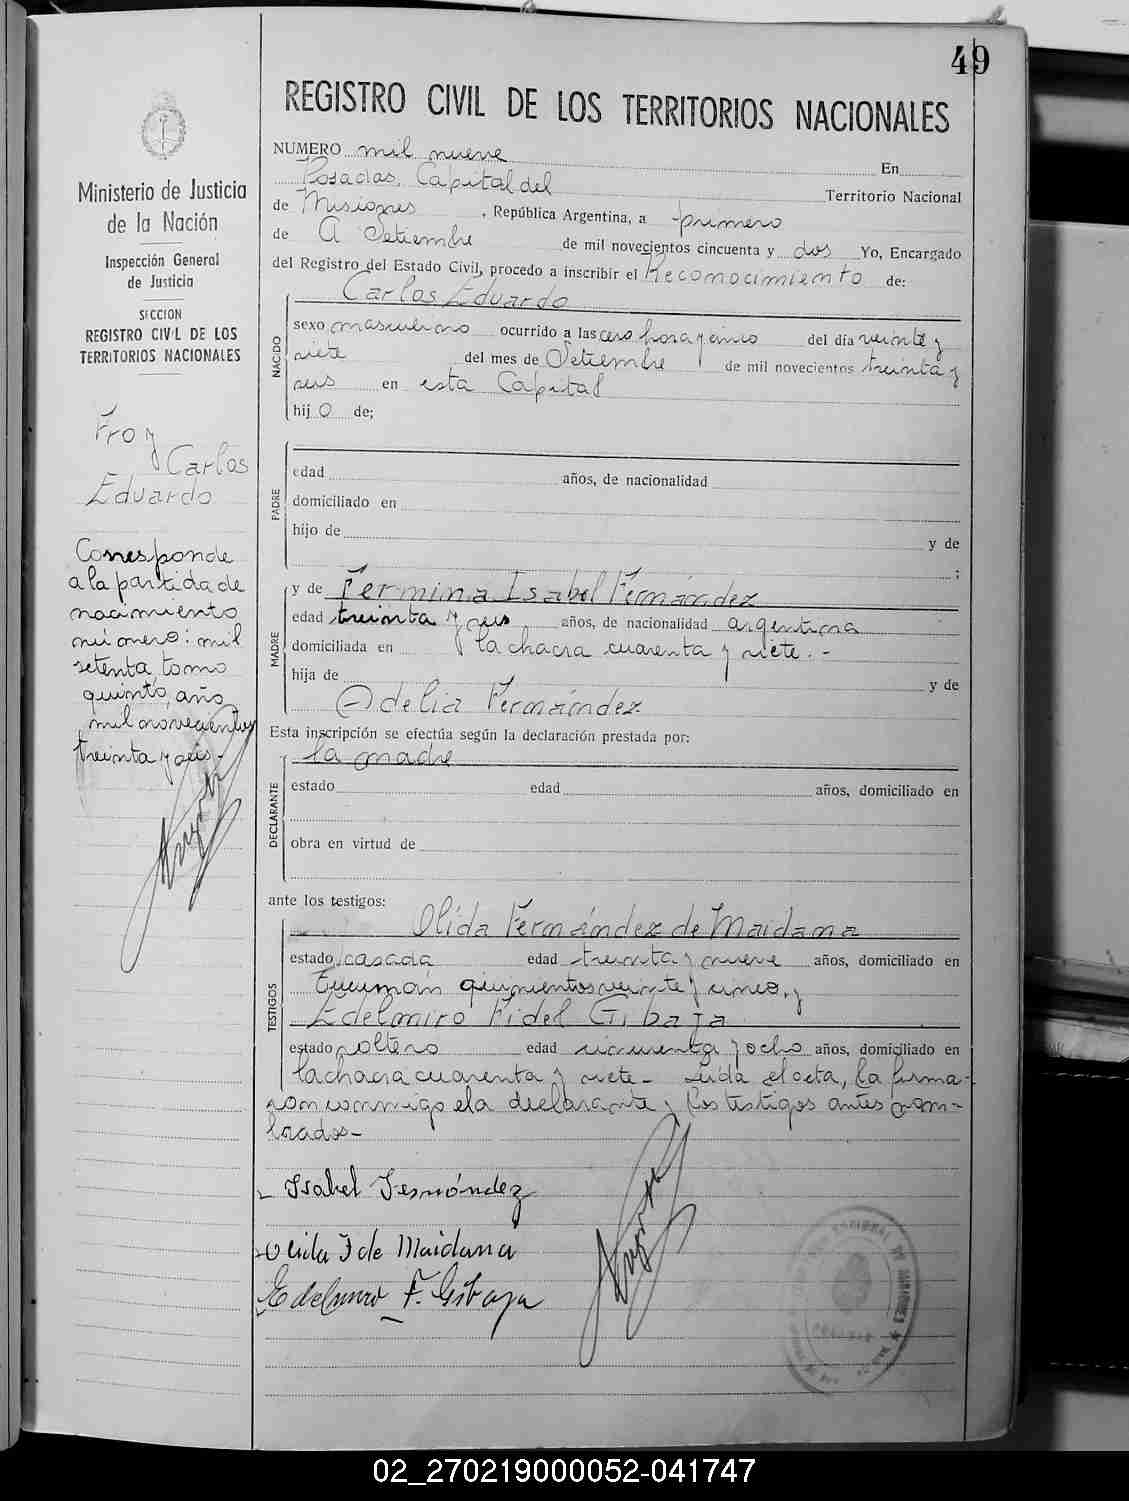 49
REGISTRO CIVIL DE LOS TERRITORIOS NACIONALES
NUMERO mil nueve En
Posadas, Capital del Territorio Nacional
de Misiones, República Argentina, a primero
de Setiembre de mil novecientos cincuenta y dos Yo, Encargado
del Registro del Estado Civil, procedo a inscribir el Reconocimiento de:
Carlos Eduardo
NACIDO
sexo masculino ocurrido a las cero hora y cinco del día veinte y
siete del mes de Setiembre de mil novecientos treinta y
seis en esta Capital
hijo de;
PADRE
edad años, de nacionalidad
domiciliado en
hijo de y de
;
y de Fermina Isabel Fernández
MADRE
edad treinta y seis años, de nacionalidad argentina
domiciliada en la chacra cuarenta y siete.-
hija de y de
Odelia Fernández
Esta inscripción se efectúa según la declaración prestada por:
la madre
DECLARANTE
estado edad años, domiciliado en
obra en virtud de
ante los testigos:
Olida Fernández de Maidana
TESTIGOS
estado casada edad treinta y nueve años, domiciliado en
Tucumán quinientos veinte y cinco, y
Edelmiro Fidel Gibaja
estado soltero edad cincuenta y ocho años, domiciliado en
la chacra cuarenta y siete- Leida el acta, la firma-
ron conmigo la declarante y los testigos antes nom-
brados-
Isabel Fernández
Olida F de Maidana
Edelmiro F. Gibaja
Ministerio de Justicia
de la Nación
Inspección General
de Justicia
SECCION
REGISTRO CIVIL DE LOS
TERRITORIOS NACIONALES
Carlos
Eduardo
Corresponde
a la partida de
nacimiento
número: mil
setenta, tomo
quinto, año
mil novecientos
treinta y seis-
02_270219000052-041747